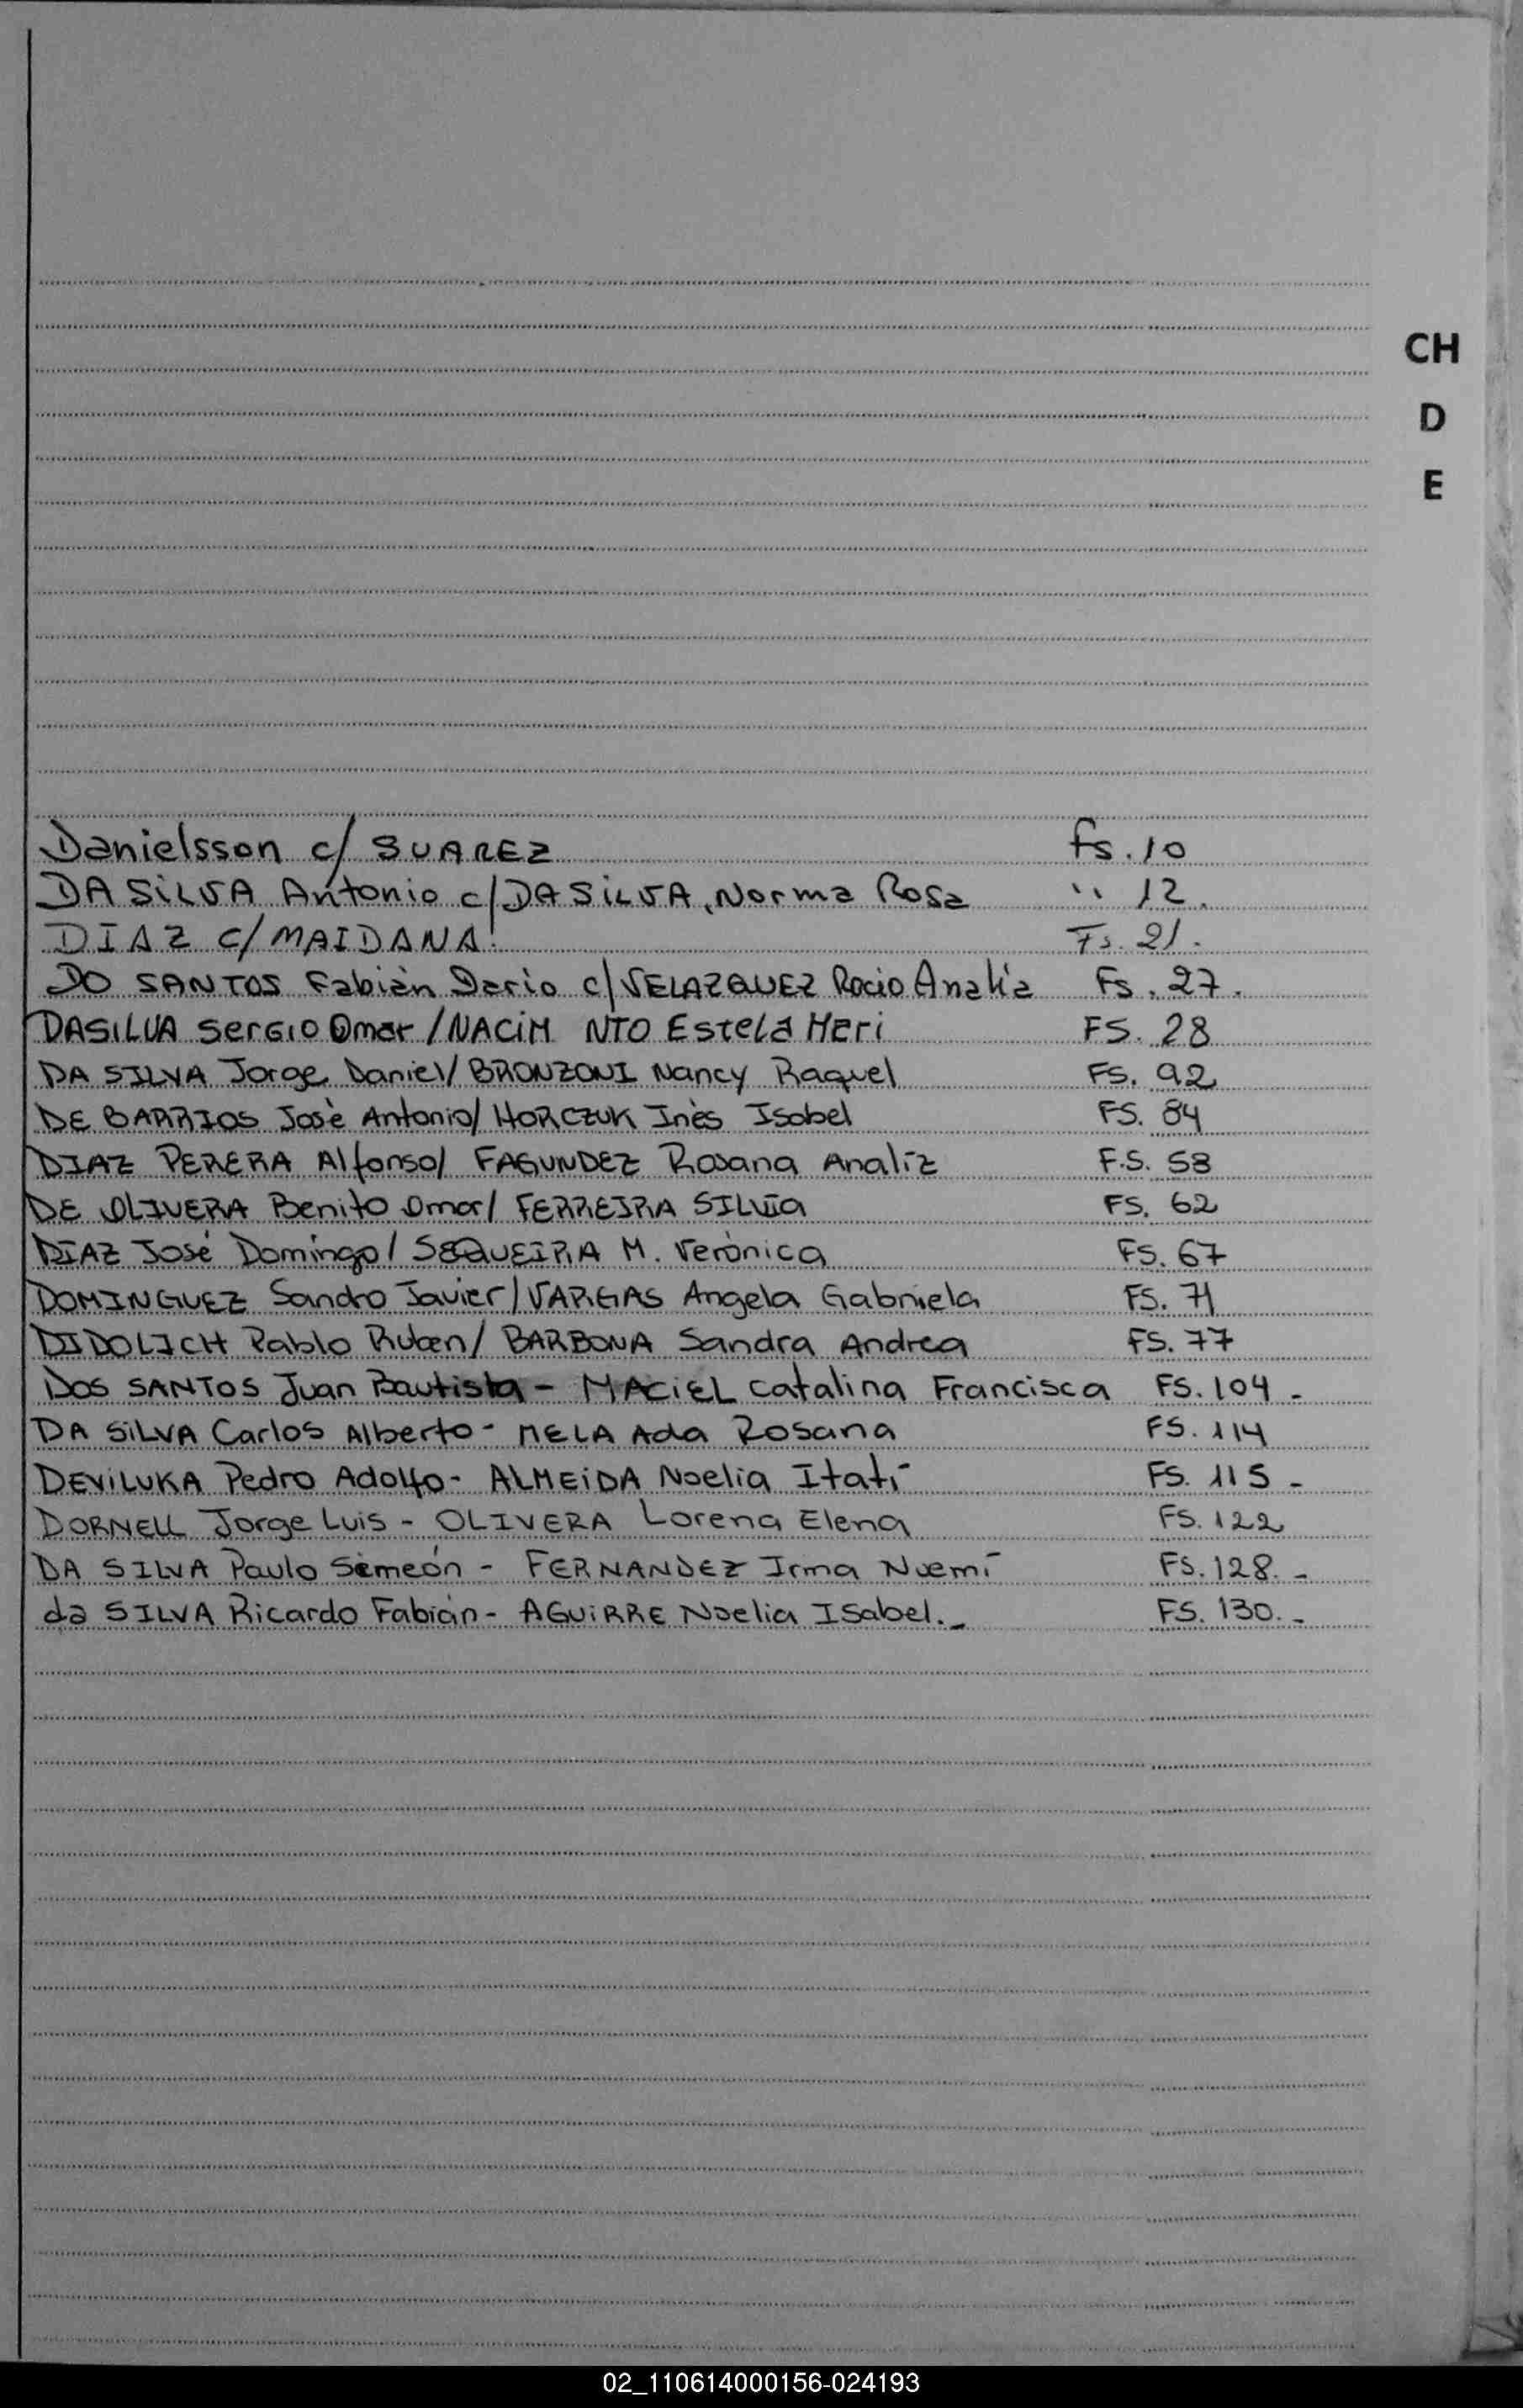 CH
D
E
Danielsson c/ SUAREZ fs. 10
DA SILVA Antonio c/ DA SILVA, Norma Rosa " 12.
DIAZ c/ MAIDANA Fs. 21.
DO SANTOS Fabián Dario c/ VELAZQUEZ Rocio Analia Fs. 27.
DASILVA SERGIO Omar / NACIM NTO Estela Meri FS. 28
DA SILVA Jorge Daniel/ BRONZONI Nancy Raquel FS. 92
DE BARRIOS Josè Antonio/ HORCZUK Inès Isabel FS. 84
DIAZ PERERA Alfonso/ FAGUNDEZ Rosana Analiz F.S. 58
DE OLIVERA Benito Omar/ FERREIRA SILVIA FS. 62
DIAZ José Domingo/ SEQUEIRA M. Verònica FS. 67
DOMINGUEZ Sandro Javier/ VARGAS Angela Gabriela FS. 71
DIDOLICH Pablo Ruben/ BARBONA Sandra Andrea FS. 77
DOS SANTOS Juan Bautista - MACIEL Catalina Francisca FS. 104 -
DA SILVA Carlos Alberto - MELA Ada Rosana FS. 114
DEVILUKA Pedro Adolfo - ALMEIDA Noelia Itatí FS. 115 -
DORNELL Jorge Luis - OLIVERA Lorena Elena FS. 122
DA SILVA Paulo Simeón - FERNANDEZ Irma Noemí FS. 128. -
da SILVA Ricardo Fabián - AGUIRRE Noelia ISabel. - FS. 130. -
02_110614000156-024193